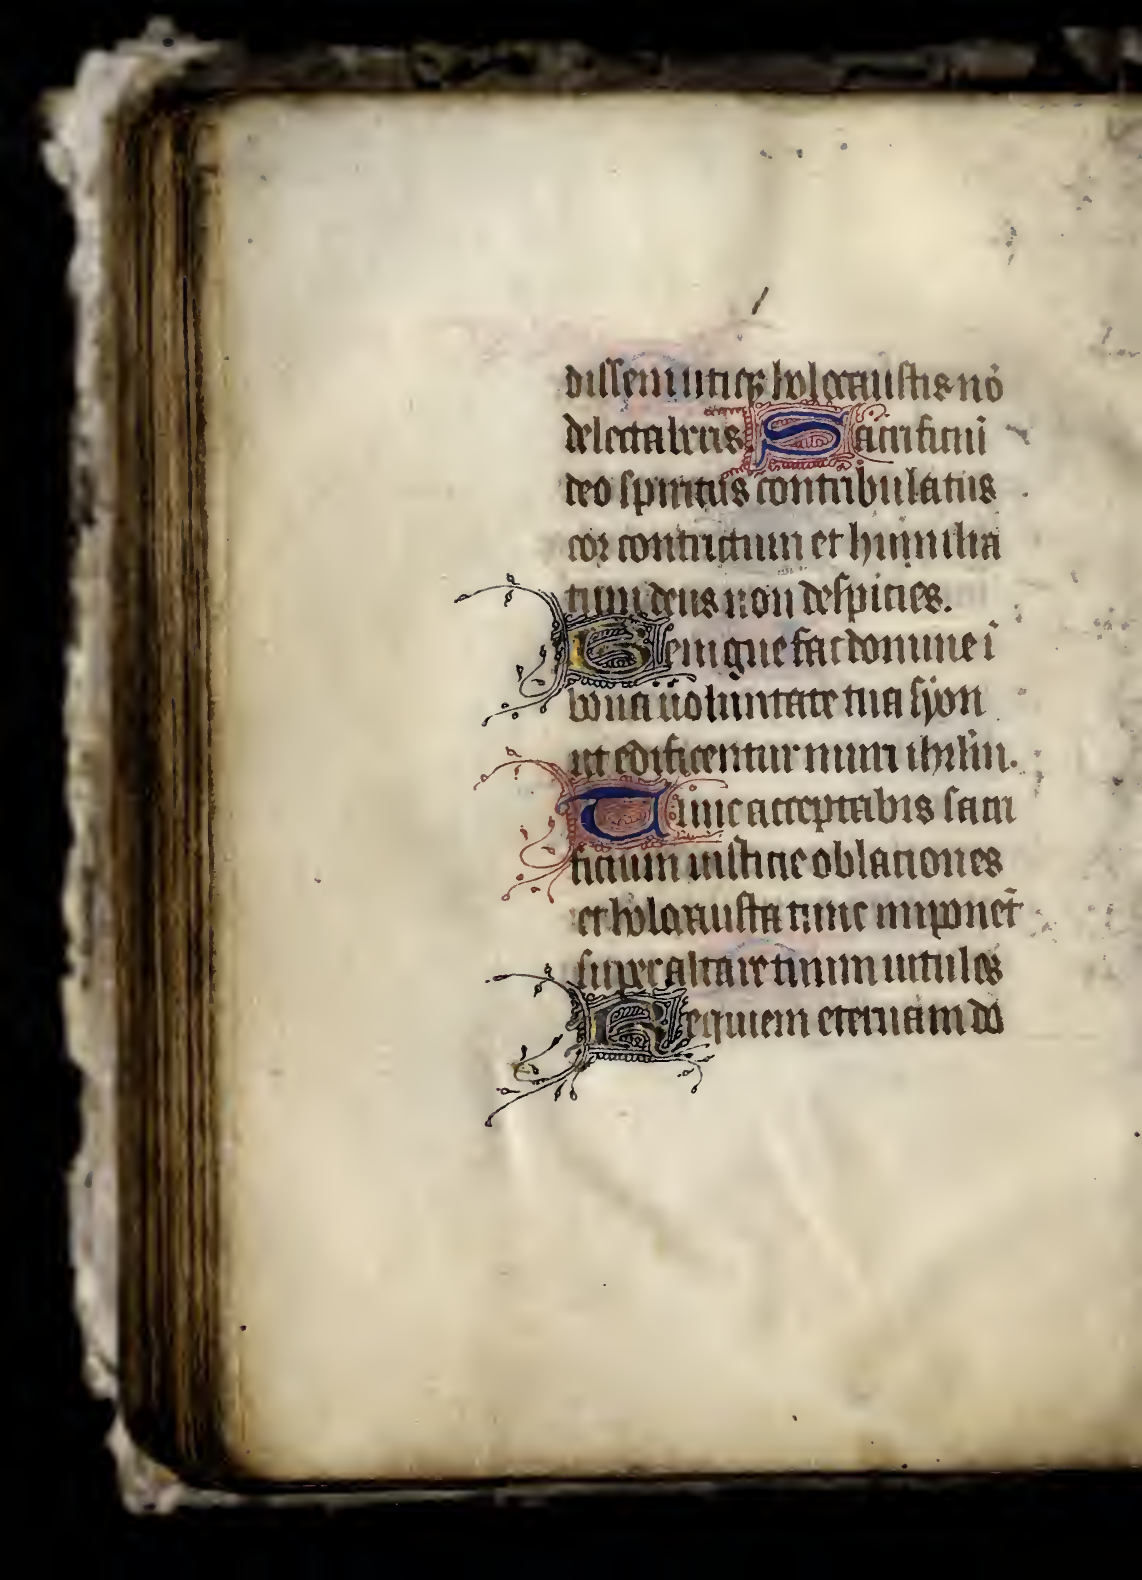 dissem utiqꝫ holocaustis nō
delectaberis. Sacrificiū
deo spiritus contribulatus
cor contritum et humilia
tum deus non despicies.
Benigne fac domine ī
bona uoluntate tua syon
ut edificentur muri ihrlm̄.
Tunc acceptabis sacri
ficium iusticie oblationes
et holocausta tunc imponēt
super altare tuum uitulos
Requiem eternam do